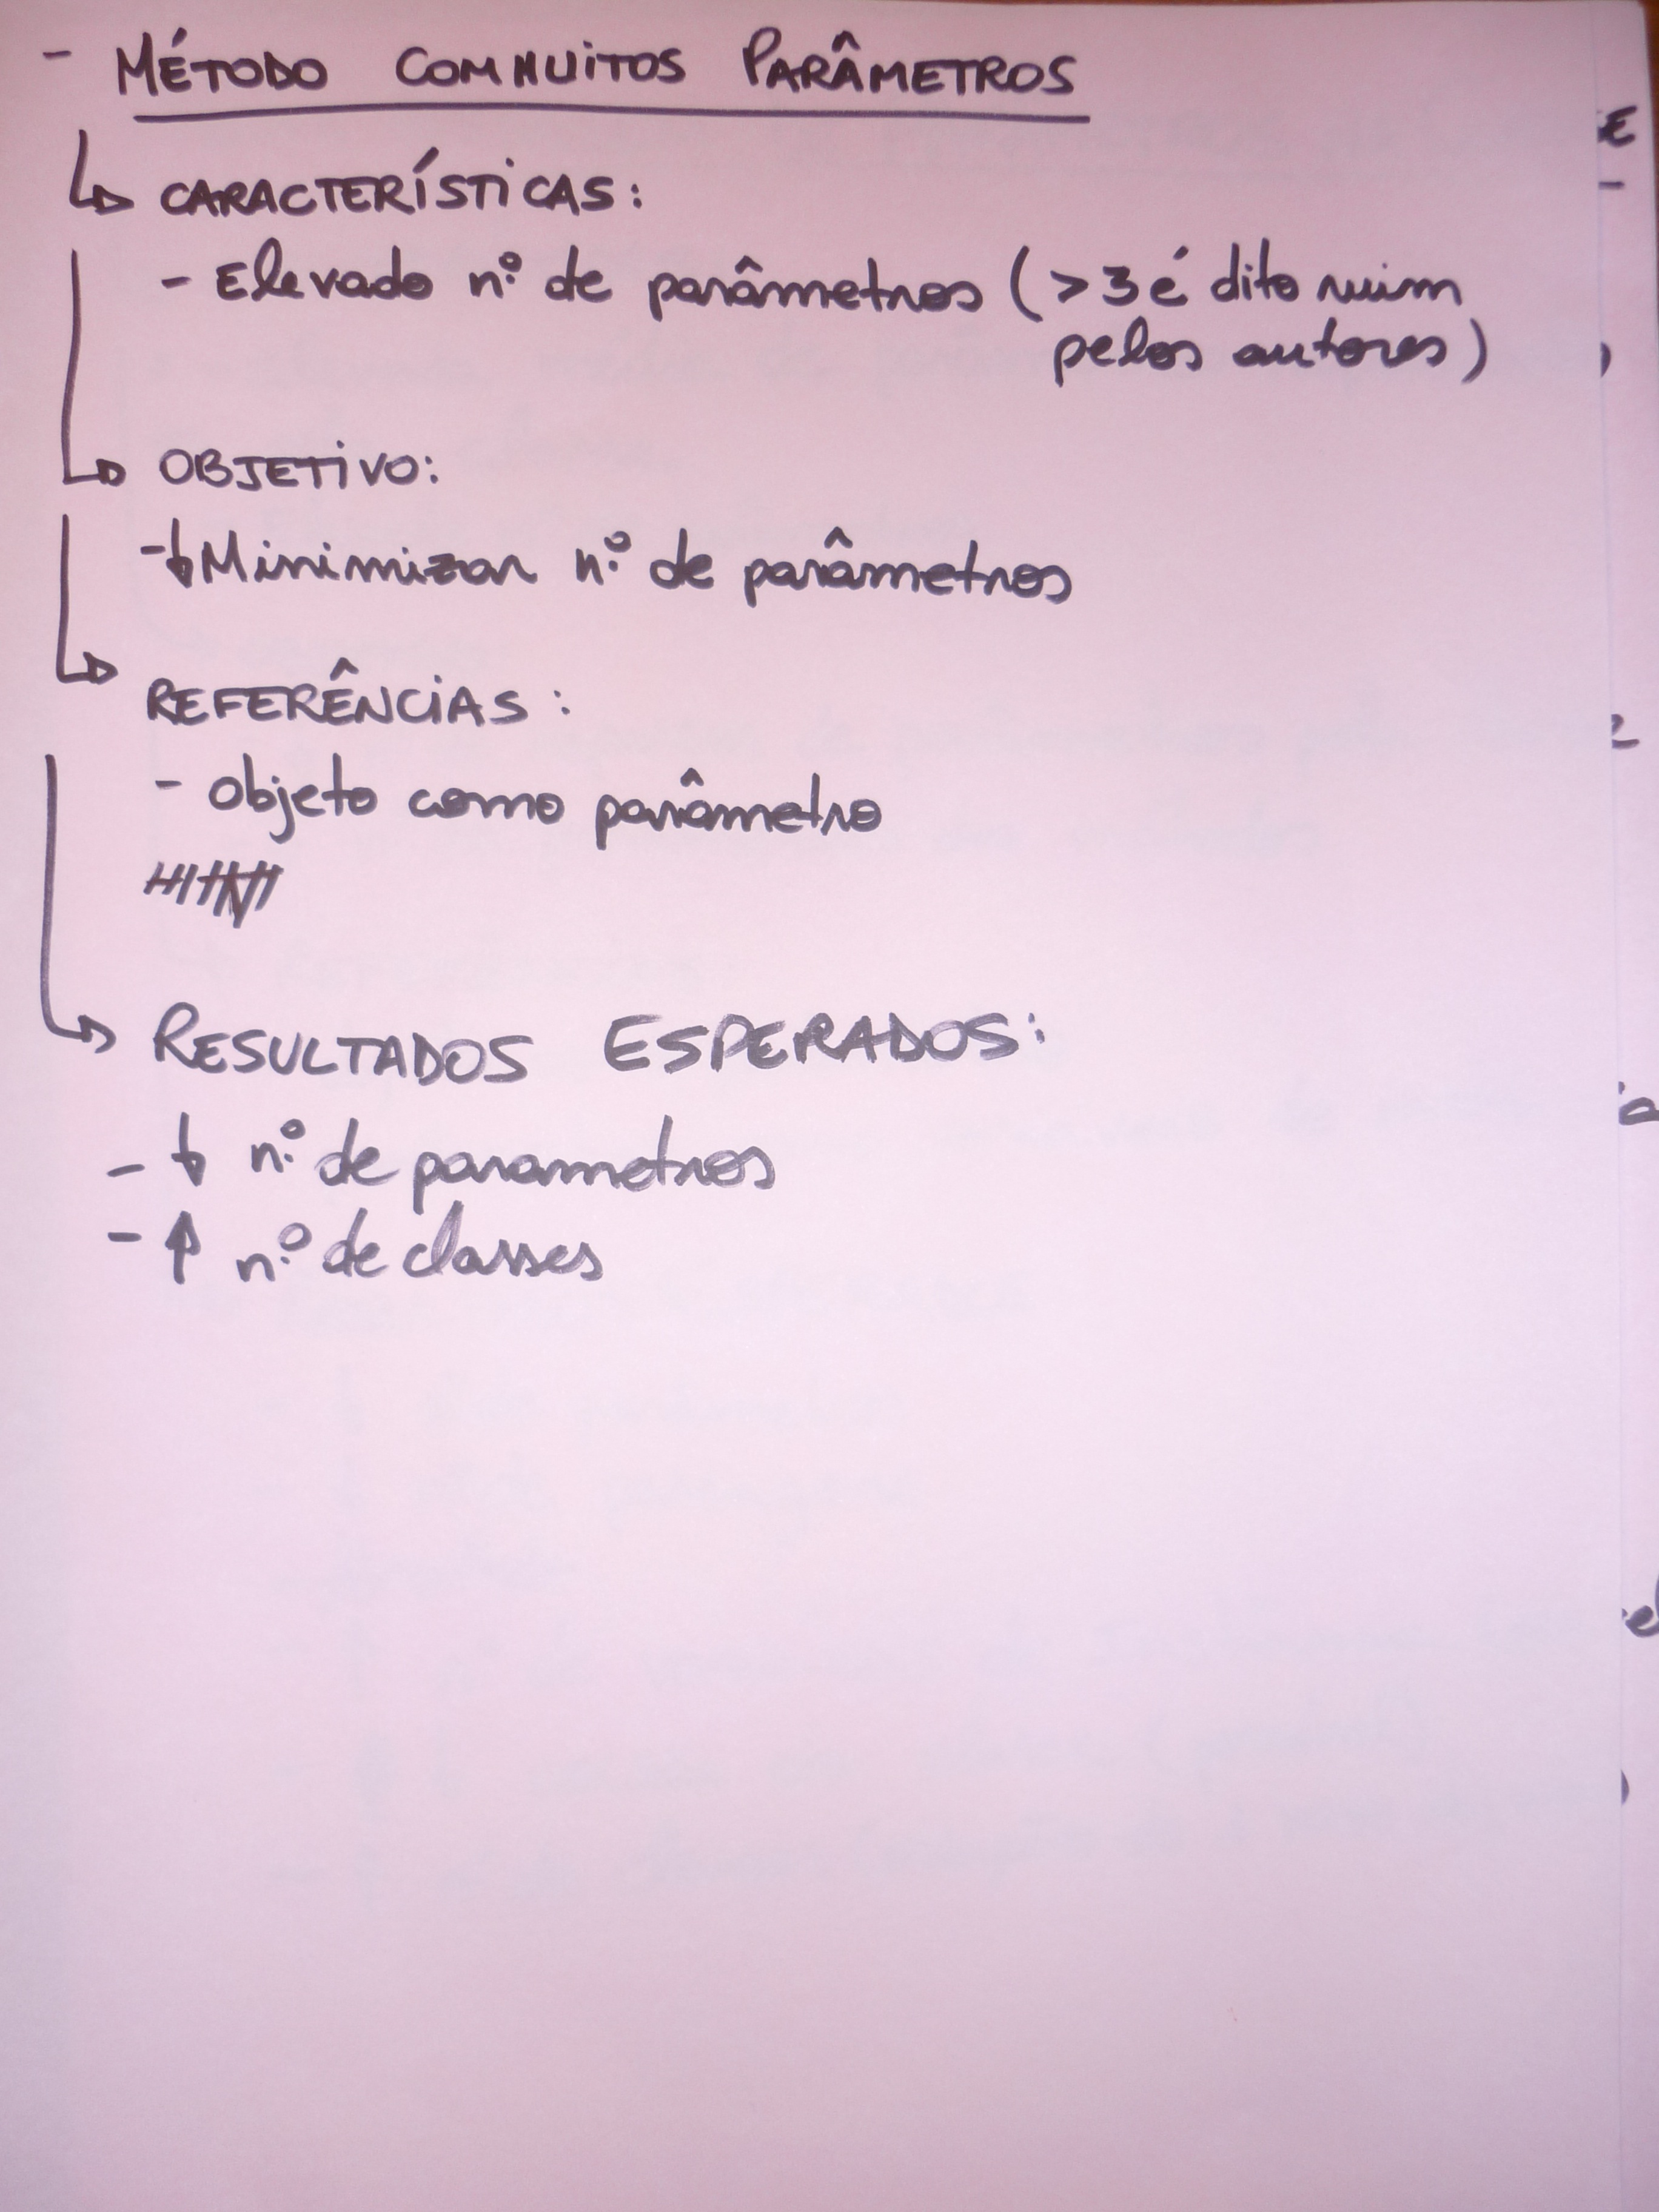 - MÉTODO COM MUITOS PARÂMETROS
↳ CARACTERÍSTICAS:
- Elevado nº de parâmetros (>3 é dito ruim
pelos autores)
↳ OBJETIVO:
- ↓ Minimizar nº de parâmetros
↳ REFERÊNCIAS:
- Objeto como parâmetro
↳ RESULTADOS ESPERADOS:
- ↓ nº de parametros
- ↑ nº de classes